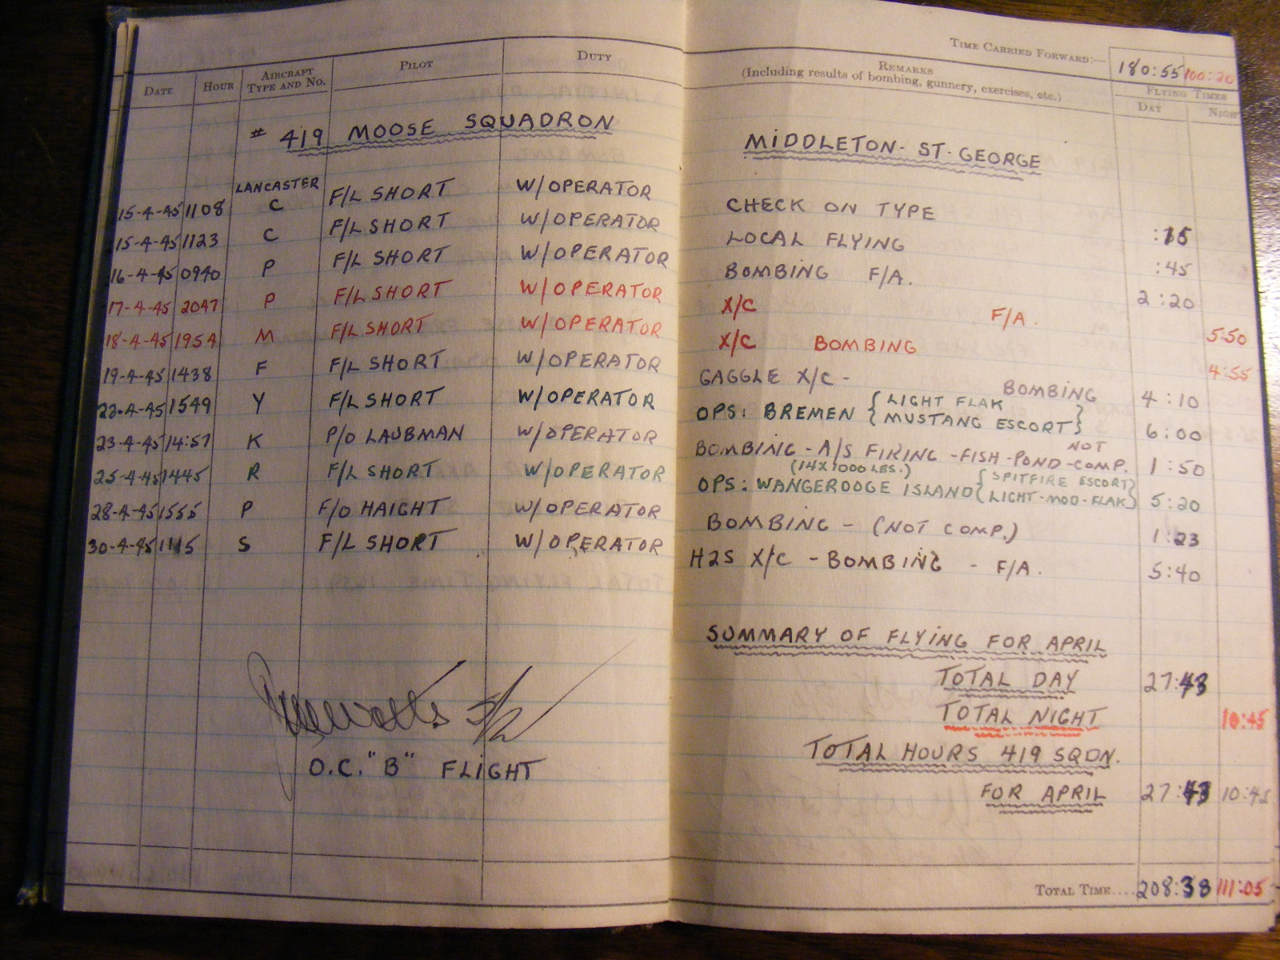 DATE HOUR AIRCRAFT TYPE AND NO. PILOT DUTY
# 419 MOOSE SQUADRON
LANCASTER
15-4-45 1108 C F/L SHORT W/OPERATOR
15-4-45 1123 C F/L SHORT W/OPERATOR
16-4-45 0940 P F/L SHORT W/OPERATOR
17-4-45 2047 P F/L SHORT W/OPERATOR
18-4-45 1954 M F/L SHORT W/OPERATOR
19-4-45 1438 F F/L SHORT W/OPERATOR
22-4-45 1549 Y F/L SHORT W/OPERATOR
23-4-45 14:57 K P/O LAUBMAN W/OPERATOR
25-4-45 1445 R F/L SHORT W/OPERATOR
28-4-45 1555 P F/O HAIGHT W/OPERATOR
30-4-45 1115 S F/L SHORT W/OPERATOR
O.C. "B" FLIGHT
TIME CARRIED FORWARD:— 180:55 100:20
REMARKS
(Including results of bombing, gunnery, exercises, etc.)
FLYING TIMES
DAY NIGHT
MIDDLETON-ST-GEORGE
CHECK ON TYPE :15
LOCAL FLYING :45
BOMBING F/A. 2:20
X/C F/A. 5:50
X/C BOMBING 4:55
GAGGLE X/C - BOMBING 4:10
OPS: BREMEN { LIGHT FLAK MUSTANG ESCORT } 6:00
BOMBING - A/S FIRING - FISH-POND - NOT COMP. 1:50
(14X1000 LBS.)
OPS: WANGEROOGE ISLAND { SPITFIRE ESCORT LIGHT-MOD-FLAK } 5:20
BOMBING - (NOT COMP.) 1:23
H2S X/C - BOMBING - F/A. 5:40
SUMMARY OF FLYING FOR APRIL
TOTAL DAY 27:43
TOTAL NIGHT 10:45
TOTAL HOURS 419 SQDN.
FOR APRIL 27:43 10:45
TOTAL TIME.... 208:38 111:05